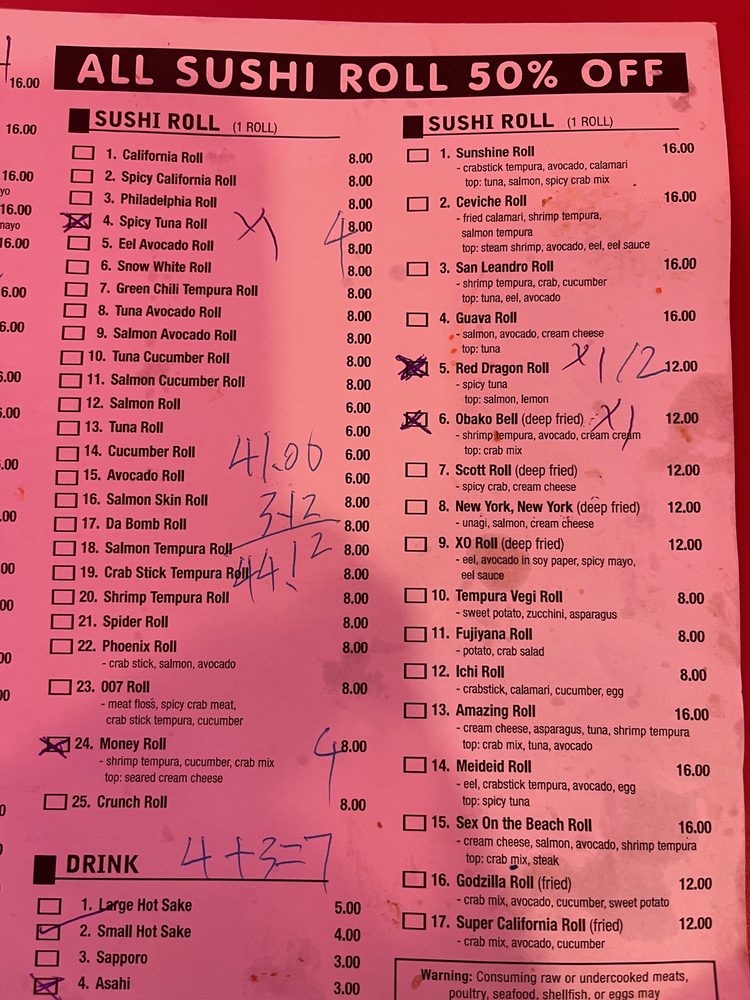 16.00
16.00
16.00
yo
16.00
mayo
16.00
6.00
6.00
6.00
6.00
.00
.00
00
00
00
00
0
0
ALL SUSHI ROLL 50% OFF
SUSHI ROLL (1 ROLL)
1. California Roll 8.00
2. Spicy California Roll 8.00
3. Philadelphia Roll 8.00
4. Spicy Tuna Roll X1 4 8.00
5. Eel Avocado Roll 8.00
6. Snow White Roll 8.00
7. Green Chili Tempura Roll 8.00
8. Tuna Avocado Roll 8.00
9. Salmon Avocado Roll 8.00
10. Tuna Cucumber Roll 8.00
11. Salmon Cucumber Roll 8.00
12. Salmon Roll 6.00
13. Tuna Roll 6.00
14. Cucumber Roll 6.00
15. Avocado Roll 6.00
41.00
16. Salmon Skin Roll 8.00
3.12
17. Da Bomb Roll 8.00
18. Salmon Tempura Roll 8.00
44.12
19. Crab Stick Tempura Roll 8.00
20. Shrimp Tempura Roll 8.00
21. Spider Roll 8.00
22. Phoenix Roll 8.00
- crab stick, salmon, avocado
23. 007 Roll 8.00
- meat floss, spicy crab meat,
crab stick tempura, cucumber
24. Money Roll 4 8.00
- shrimp tempura, cucumber, crab mix
top: seared cream cheese
25. Crunch Roll 8.00
DRINK 4+3=7
1. Large Hot Sake 5.00
2. Small Hot Sake 4.00
3. Sapporo 3.00
4. Asahi 3.00
SUSHI ROLL (1 ROLL)
1. Sunshine Roll 16.00
- crabstick tempura, avocado, calamari
top: tuna, salmon, spicy crab mix
2. Ceviche Roll 16.00
- fried calamari, shrimp tempura,
salmon tempura
top: steam shrimp, avocado, eel, eel sauce
3. San Leandro Roll 16.00
- shrimp tempura, crab, cucumber
top: tuna, eel, avocado
4. Guava Roll 16.00
- salmon, avocado, cream cheese
top: tuna
5. Red Dragon Roll X1 12 12.00
- spicy tuna
top: salmon, lemon
6. Obako Bell (deep fried) X1 12.00
- shrimp tempura, avocado, cream cream
top: crab mix
7. Scott Roll (deep fried) 12.00
- spicy crab, cream cheese
8. New York, New York (deep fried) 12.00
- unagi, salmon, cream cheese
9. XO Roll (deep fried) 12.00
- eel, avocado in soy paper, spicy mayo,
eel sauce
10. Tempura Vegi Roll 8.00
- sweet potato, zucchini, asparagus
11. Fujiyana Roll 8.00
- potato, crab salad
12. Ichi Roll 8.00
- crabstick, calamari, cucumber, egg
13. Amazing Roll 16.00
- cream cheese, asparagus, tuna, shrimp tempura
top: crab mix, tuna, avocado
14. Meideid Roll 16.00
- eel, crabstick tempura, avocado, egg
top: spicy tuna
15. Sex On the Beach Roll 16.00
- cream cheese, salmon, avocado, shrimp tempura
top: crab mix, steak
16. Godzilla Roll (fried) 12.00
- crab mix, avocado, cucumber, sweet potato
17. Super California Roll (fried) 12.00
- crab mix, avocado, cucumber
Warning: Consuming raw or undercooked meats,
poultry, seafood, shellfish, or eggs may